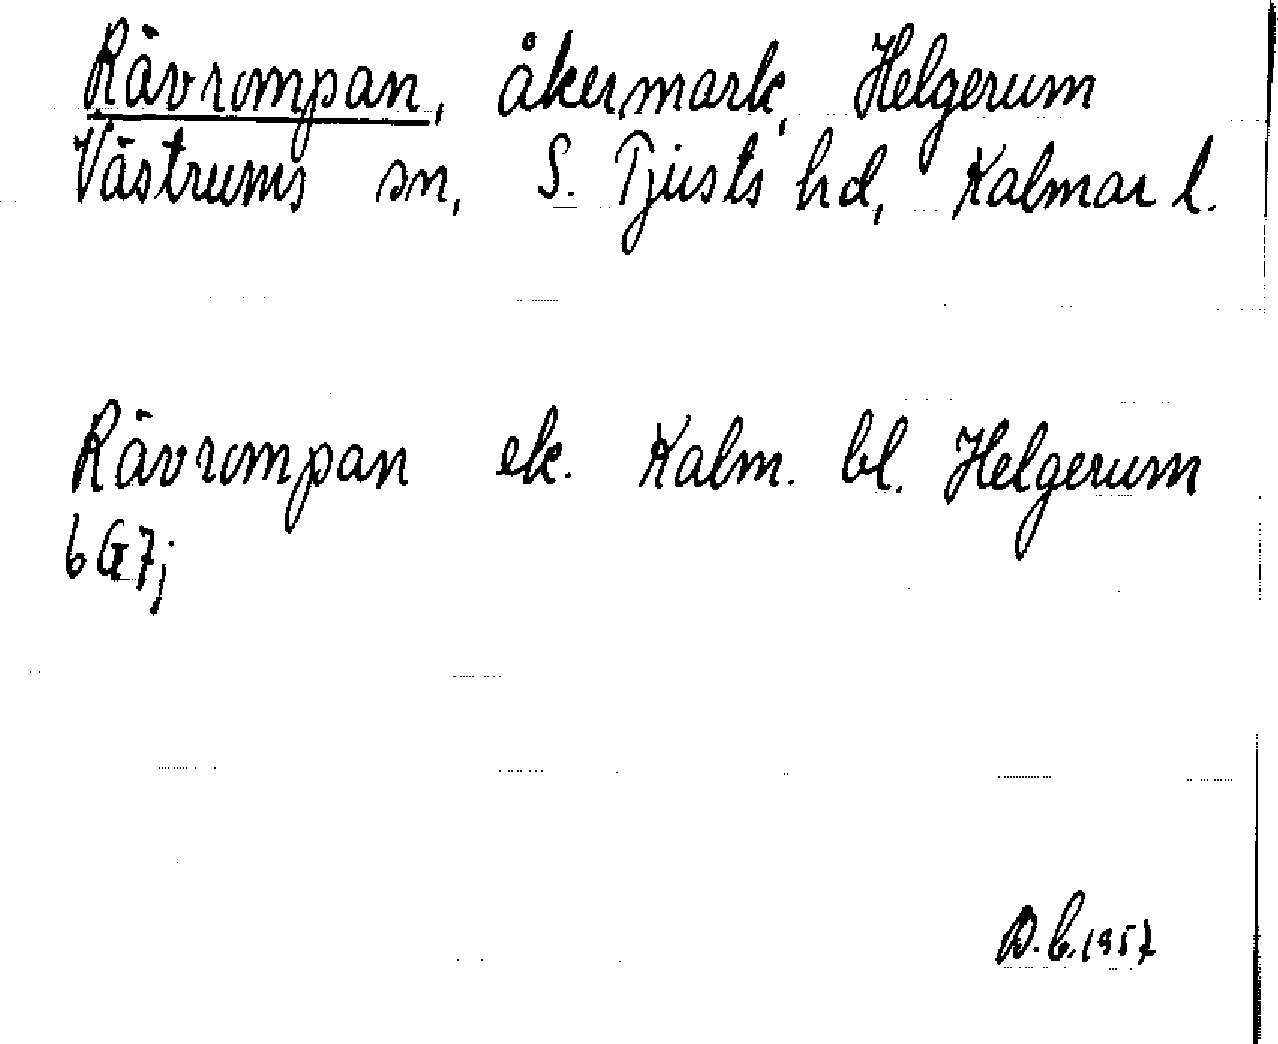 Rävrompan, åkermark, Helgerum
Västrums sn, S. Tjusts hd, Kalmar l.
Rävrompan ek. Kalm. bl. Helgerum
6G7j
D.b.1957